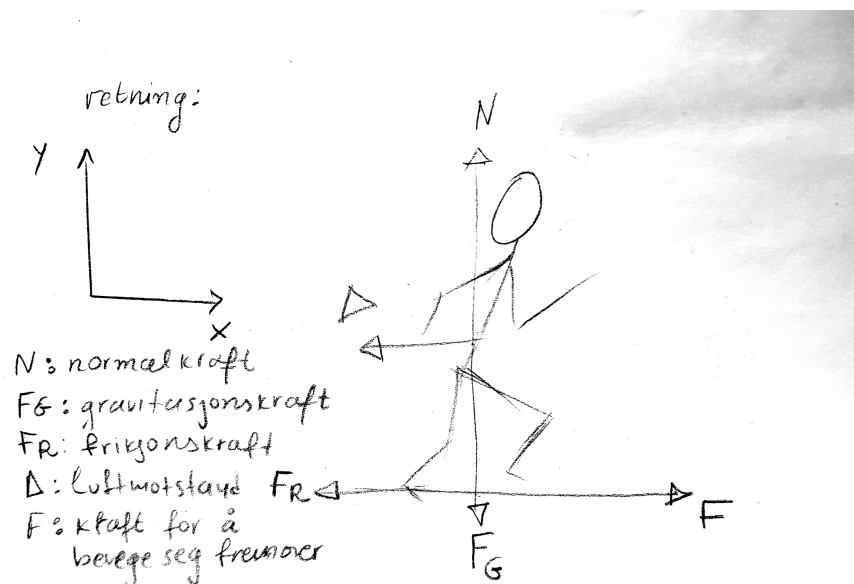 retning:
N
y
x
N: normalkraft
FG: gravitasjonskraft
FR: friksjonskraft
D: luftmotstand
F: kraft for å
bevege seg fremover
D
FR
F
FG